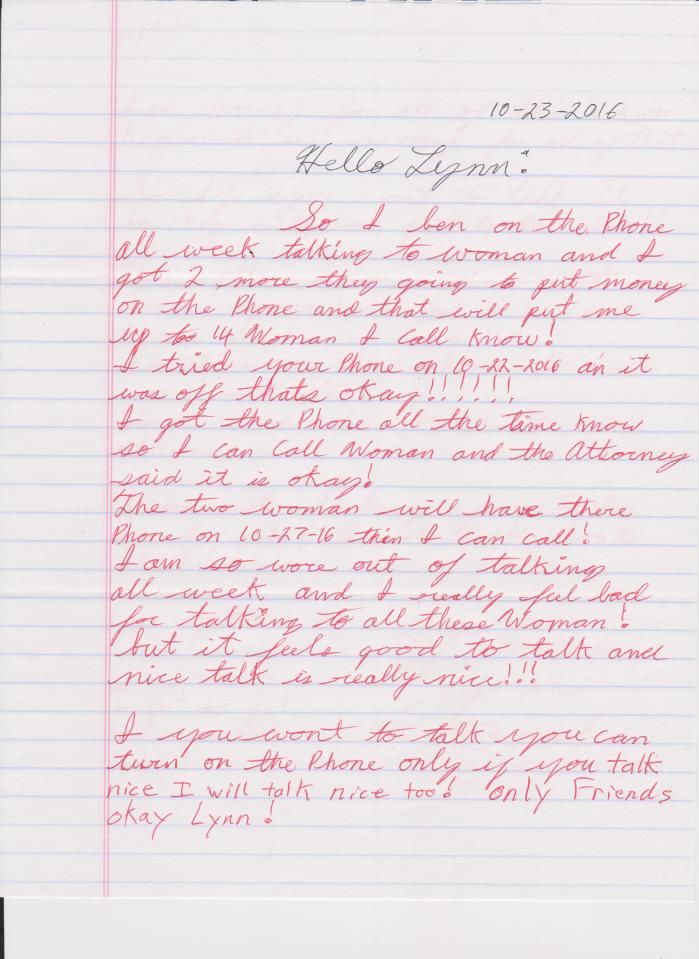 10-23-2016
Hello Lynn:
So I ben on the Phone
all week talking to woman and I
got 2 more they going to put money
on the Phone and that will put me
up to 14 Woman I Call Know!
I tried your Phone on 10-22-2016 an it
was off thats okay!!!!!!
I got the Phone all the time Know
so I can Call Woman and the Attorney
said it is okay!
The two woman will have there
Phone on 10-27-16 then I can call!
I am so wore out of talking
all week and I really feel bad
for talking to all these Woman!
but it feels good to talk and
nice talk is really nice!!!
I you wont to talk you can
turn on the Phone only if you talk
nice I will talk nice too! only Friends
okay Lynn!